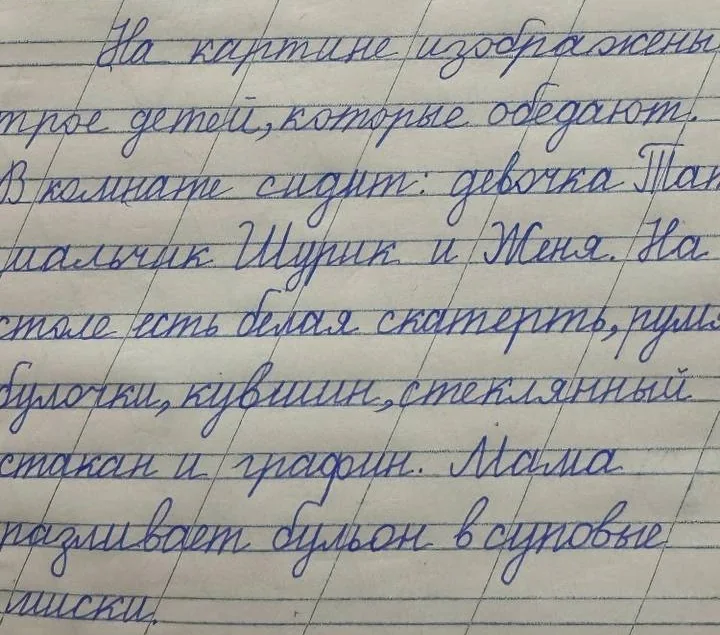 На картине изображены
трое детей, которые обедают.
В комнате сидит: девочка Тан
мальчик Шурик и Женя. На
столе есть белая скатерть, румя
булочки, кувшин, стеклянный
стакан и графин. Мама
разливает бульон в суповые
миски.